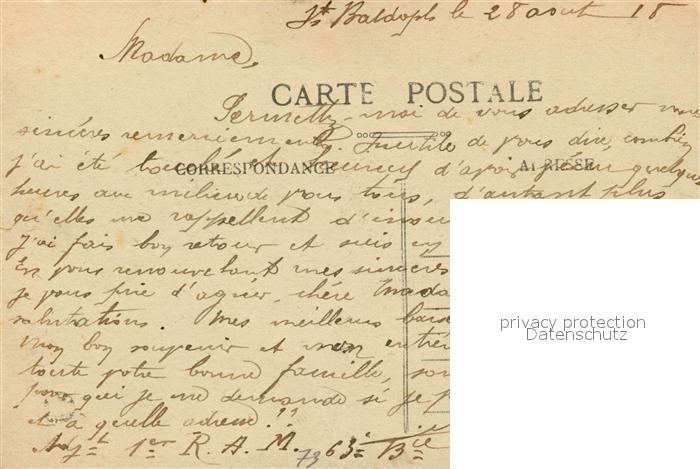 St Baldoph le 28 août 18
Madame,
CARTE POSTALE
Permettez-moi de vous adresser mes
sincères remerciements. Inutile de vous dire, combien
j'ai été touché et heureux d'avoir quelques
CORRESPONDANCE
ADRESSE
heures au milieu de vous tous, d'autant plus
qu'elles me rappellent
J'ai fais bon retour et suis en
En vous renouvelant mes sincères
je vous prie d'agréer, chère Mada
salutations. Mes meilleurs bais
Mon bon souvenir et mon
toute votre bonne famille,
pour qui je me demande si je
et à quelle adresse!!
privacy protection
Datenschutz
Adjt 1er R. A. M. 63e Bie